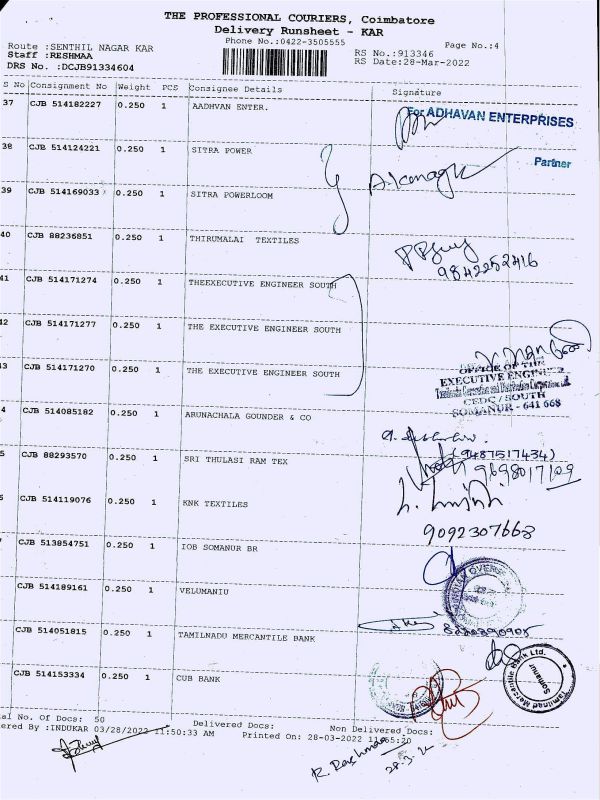 THE PROFESSIONAL COURIERS, Coimbatore
Delivery Runsheet - KAR
Phone No.:0422-3505555
Page No.:4
Route :SENTHIL NAGAR KAR
RS No.:913346
Staff :RESHMAA
RS Date:28-Mar-2022
DRS No. :DCJB91334604
S No Consignment No Weight PCS Consignee Details Signature
37 CJB 514182227 0.250 1 AADHVAN ENTER.
For ADHAVAN ENTERPRISES
38 CJB 514124221 0.250 1 SITRA POWER
Partner
39 CJB 514169033 0.250 1 SITRA POWERLOOM
40 CJB 88236851 0.250 1 THIRUMALAI TEXTILES
9842252416
41 CJB 514171274 0.250 1 THEEXECUTIVE ENGINEER SOUTH
42 CJB 514171277 0.250 1 THE EXECUTIVE ENGINEER SOUTH
43 CJB 514171270 0.250 1 THE EXECUTIVE ENGINEER SOUTH
OFFICE OF THE
EXECUTIVE ENGINEER
CEDC / SOUTH
SOMANUR - 641 668
4 CJB 514085182 0.250 1 ARUNACHALA GOUNDER & CO
(9487517434)
5 CJB 88293570 0.250 1 SRI THULASI RAM TEX
9698017109
6 CJB 514119076 0.250 1 KNK TEXTILES
9092307668
7 CJB 513854751 0.250 1 IOB SOMANUR BR
CJB 514189161 0.250 1 VELUMANIU
CJB 514051815 0.250 1 TAMILNADU MERCANTILE BANK
CJB 514153334 0.250 1 CUB BANK
Tamilnad Mercantile Bank Ltd.
Somanur
al No. Of Docs: 50 Delivered Docs: Non Delivered Docs:
ered By :INDUKAR 03/28/2022 11:50:33 AM Printed On: 28-03-2022 11:55:20
R. Reshmaa
28.3.22